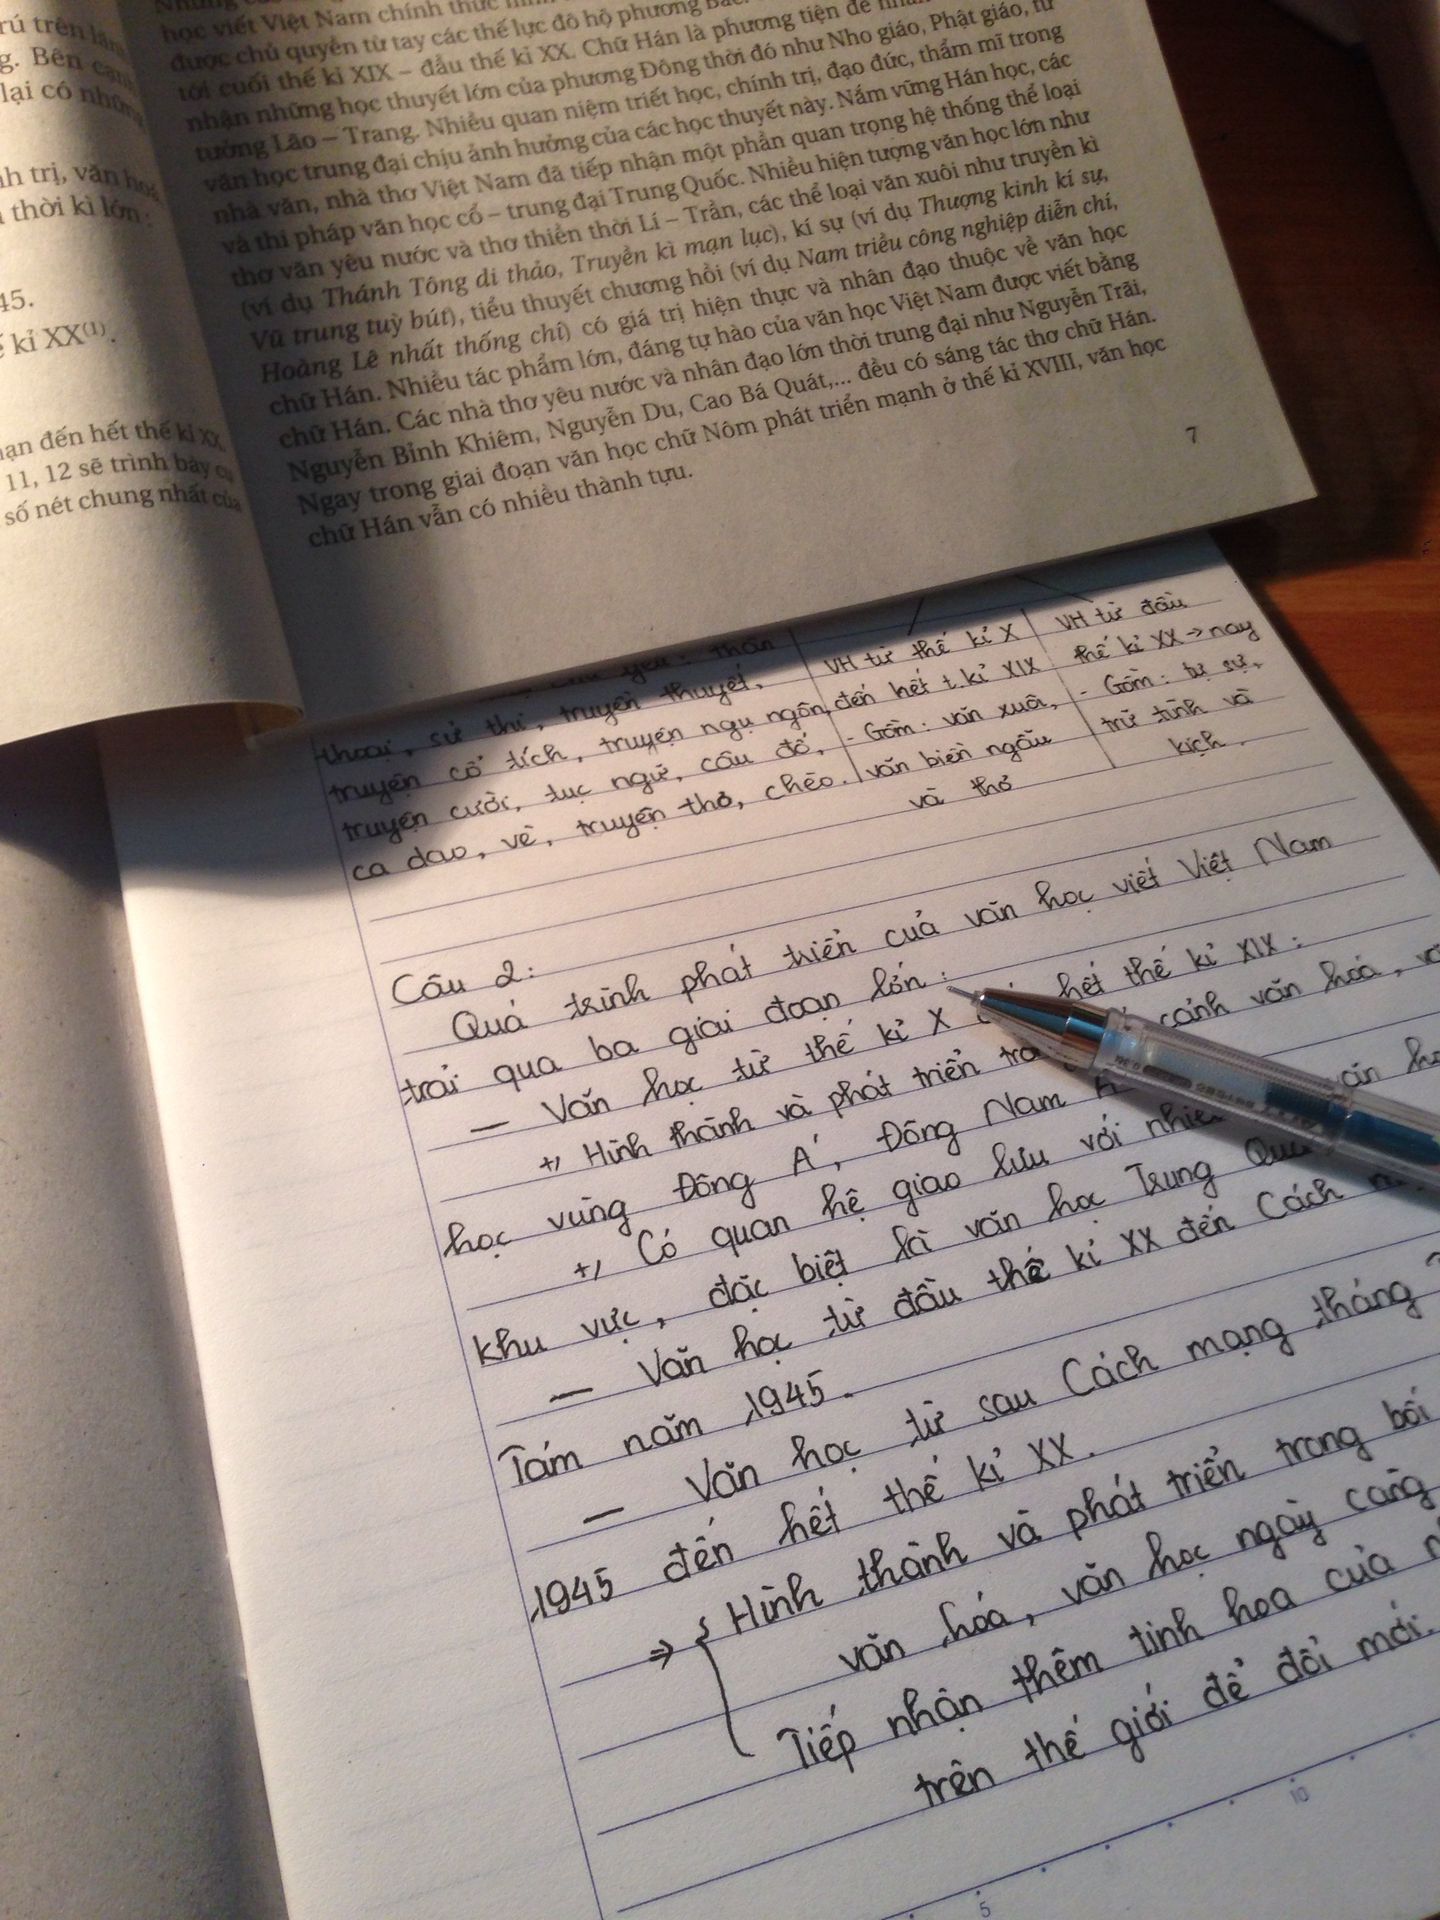 rú trên lãn
g. Bên cạnh
lại có những
nh trị, văn hoá
thời kì lớn :
45.
ế kỉ XX(1).
đến hết thế kỉ XX,
11, 12 sẽ trình bày
số nét chung nhất của
học viết Việt Nam chính thức
được chủ quyền từ tay các thế lực đô hộ phương Bắc.
tới cuối thế kỉ XIX – đầu thế kỉ XX. Chữ Hán là phương tiện để
nhận những học thuyết lớn của phương Đông thời đó như Nho giáo, Phật giáo, tư
tưởng Lão – Trang. Nhiều quan niệm triết học, chính trị, đạo đức, thẩm mĩ trong
văn học trung đại chịu ảnh hưởng của các học thuyết này. Nắm vững Hán học, các
nhà văn, nhà thơ Việt Nam đã tiếp nhận một phần quan trọng hệ thống thể loại
và thi pháp văn học cổ – trung đại Trung Quốc. Nhiều hiện tượng văn học lớn như
thơ văn yêu nước và thơ thiền thời Lí – Trần, các thể loại văn xuôi như truyền kì
(ví dụ Thánh Tông di thảo, Truyền kì mạn lục), kí sự (ví dụ Thượng kinh kí sự,
Vũ trung tuỳ bút), tiểu thuyết chương hồi (ví dụ Nam triều công nghiệp diễn chí,
Hoàng Lê nhất thống chí) có giá trị hiện thực và nhân đạo thuộc về văn học
chữ Hán. Nhiều tác phẩm lớn, đáng tự hào của văn học Việt Nam được viết bằng
chữ Hán. Các nhà thơ yêu nước và nhân đạo lớn thời trung đại như Nguyễn Trãi,
Nguyễn Bỉnh Khiêm, Nguyễn Du, Cao Bá Quát,... đều có sáng tác thơ chữ Hán.
Ngay trong giai đoạn văn học chữ Nôm phát triển mạnh ở thế kỉ XVIII, văn học
chữ Hán vẫn có nhiều thành tựu.
7
yếu : Thần
thoại, sử thi, truyền thuyết,
truyện cổ tích, truyện ngụ ngôn,
truyện cười, tục ngữ, câu đố,
ca dao, vè, truyện thơ, chèo.
VH từ thế kỉ X
đến hết t.kỉ XIX
- Gồm : văn xuôi,
văn biền ngẫu
và thơ
VH từ đầu
thế kỉ XX → nay
- Gồm : tự sự,
trữ tình và
kịch.
Câu 2:
Quá trình phát triển của văn học viết Việt Nam
trải qua ba giai đoạn lớn :
— Văn học từ thế kỉ X hết thế kỉ XIX :
+, Hình thành và phát triển cảnh văn hoá,
học vùng Đông Á, Đông Nam Á
+, Có quan hệ giao lưu với văn
khu vực, đặc biệt là văn học Trung
— Văn học từ đầu thế kỉ XX đến Cách
Tám năm 1945.
— Văn học từ sau Cách mạng tháng
1945 đến hết thế kỉ XX.
⇒ { Hình thành và phát triển trong bối
văn hóa, văn học ngày càng
Tiếp nhận thêm tinh hoa của
trên thế giới để đổi mới.
5
10